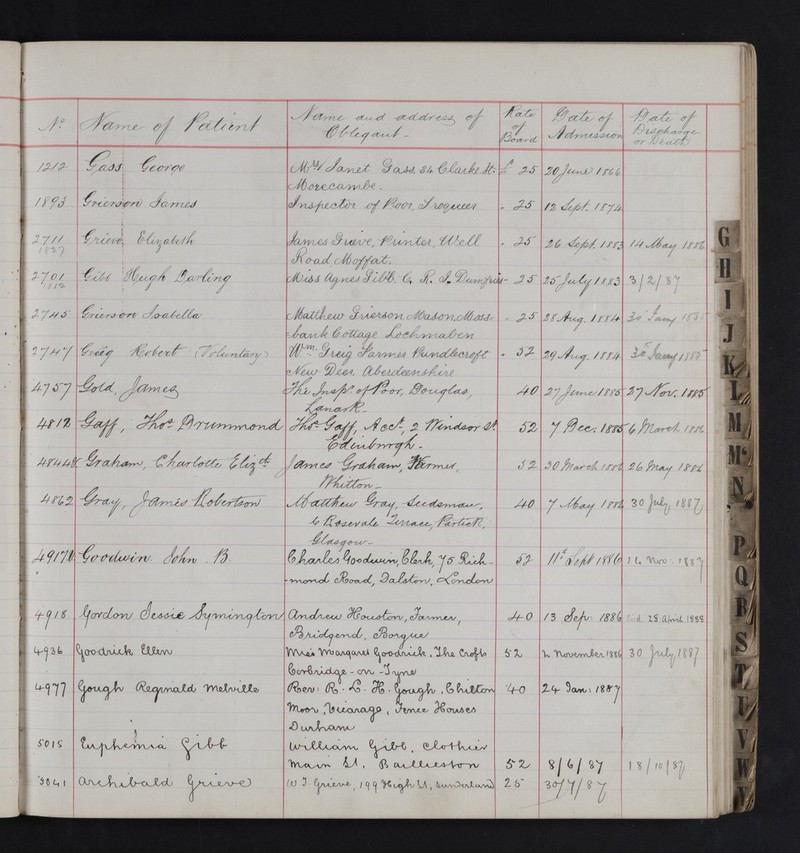 No. Name of Patient Name and address of Obligant - Rate of Board Date of Admission Date of Discharge or Death
1212 Gass George Mrs Janet Gass 34 Clarke St. £ 25 20 June 1866
Morecambe -
1893 Grierson James Inspector of Poor, Troqueer " 25 12 Sept. 1874
2711 Grieve, Elizabeth James Grieve, Printer, Well " 25 26 Sept. 1883 14 May 1886
Road Moffat.
2701 Gibb Hugh Darling Miss Agnes Gibb. C. R. I. Dumfries - 25 25 July 1883 3/2/87
2745 Grierson Isabella Matthew Grierson Mason Moss- " 25 28 Aug. 1884
bank Cottage Lochmaben
2747 Greig Robert (Voluntary) Wm. Greig Farmer Pundlecroft " 52 29 Aug. 1884
New Deer Aberdeenshire
4757 Gold, James The Inspr. of Poor, Douglas, 40 27 June 1885 27 Nov. 1885
Lanark -
4812 Gaff, Thos. Drummond Thos. Gaff, Acct., 2 Windsor St. 52 7 Dec. 1885 6 March 1886
Edinburgh -
4844 Graham, Charlotte Elizth James Graham, Farmer, 52 30 March 1886 26 May 1886
Whitton -
4862 Gray, James Robertson Matthew Gray, Seedsman, 40 7 May 1886 30 July 1887
6 Rosevale Terrace, Partick,
Glasgow -
4917 Goodwin John B. Charles Goodwin, Clerk, 75 Rich- 52 11th Sept 1886 Nov: 1887
-mond Road, Dalston, London
4918 Gordon Jessie Symington Andrew Houston, Farmer, 40 13 Sep: 1886 28 April 1888
Bridgend, Borgue
4936 Goodrick Ellen Miss Margaret Goodrick, The Crofts 52 2 November 1886 30 July 1887
Corbridge-on-Tyne
4977 Gough Reginald Melville Rev: R. L. H. Gough, Chilton 40 24 Jan: 1887
Moor Vicarage, Fence Houses
Durham
5015 Euphemia Gibb William Gibb, Clothier
Main St. Baillieston 52 8/6/87 18/10/87
5041 Archibald Grieve W J Grieve, 199 High St, Sunderland 25 30/7/87
G
H
I
J
K
L
M
Mc
N
P
Q
R
S
T
U
V
W
Y